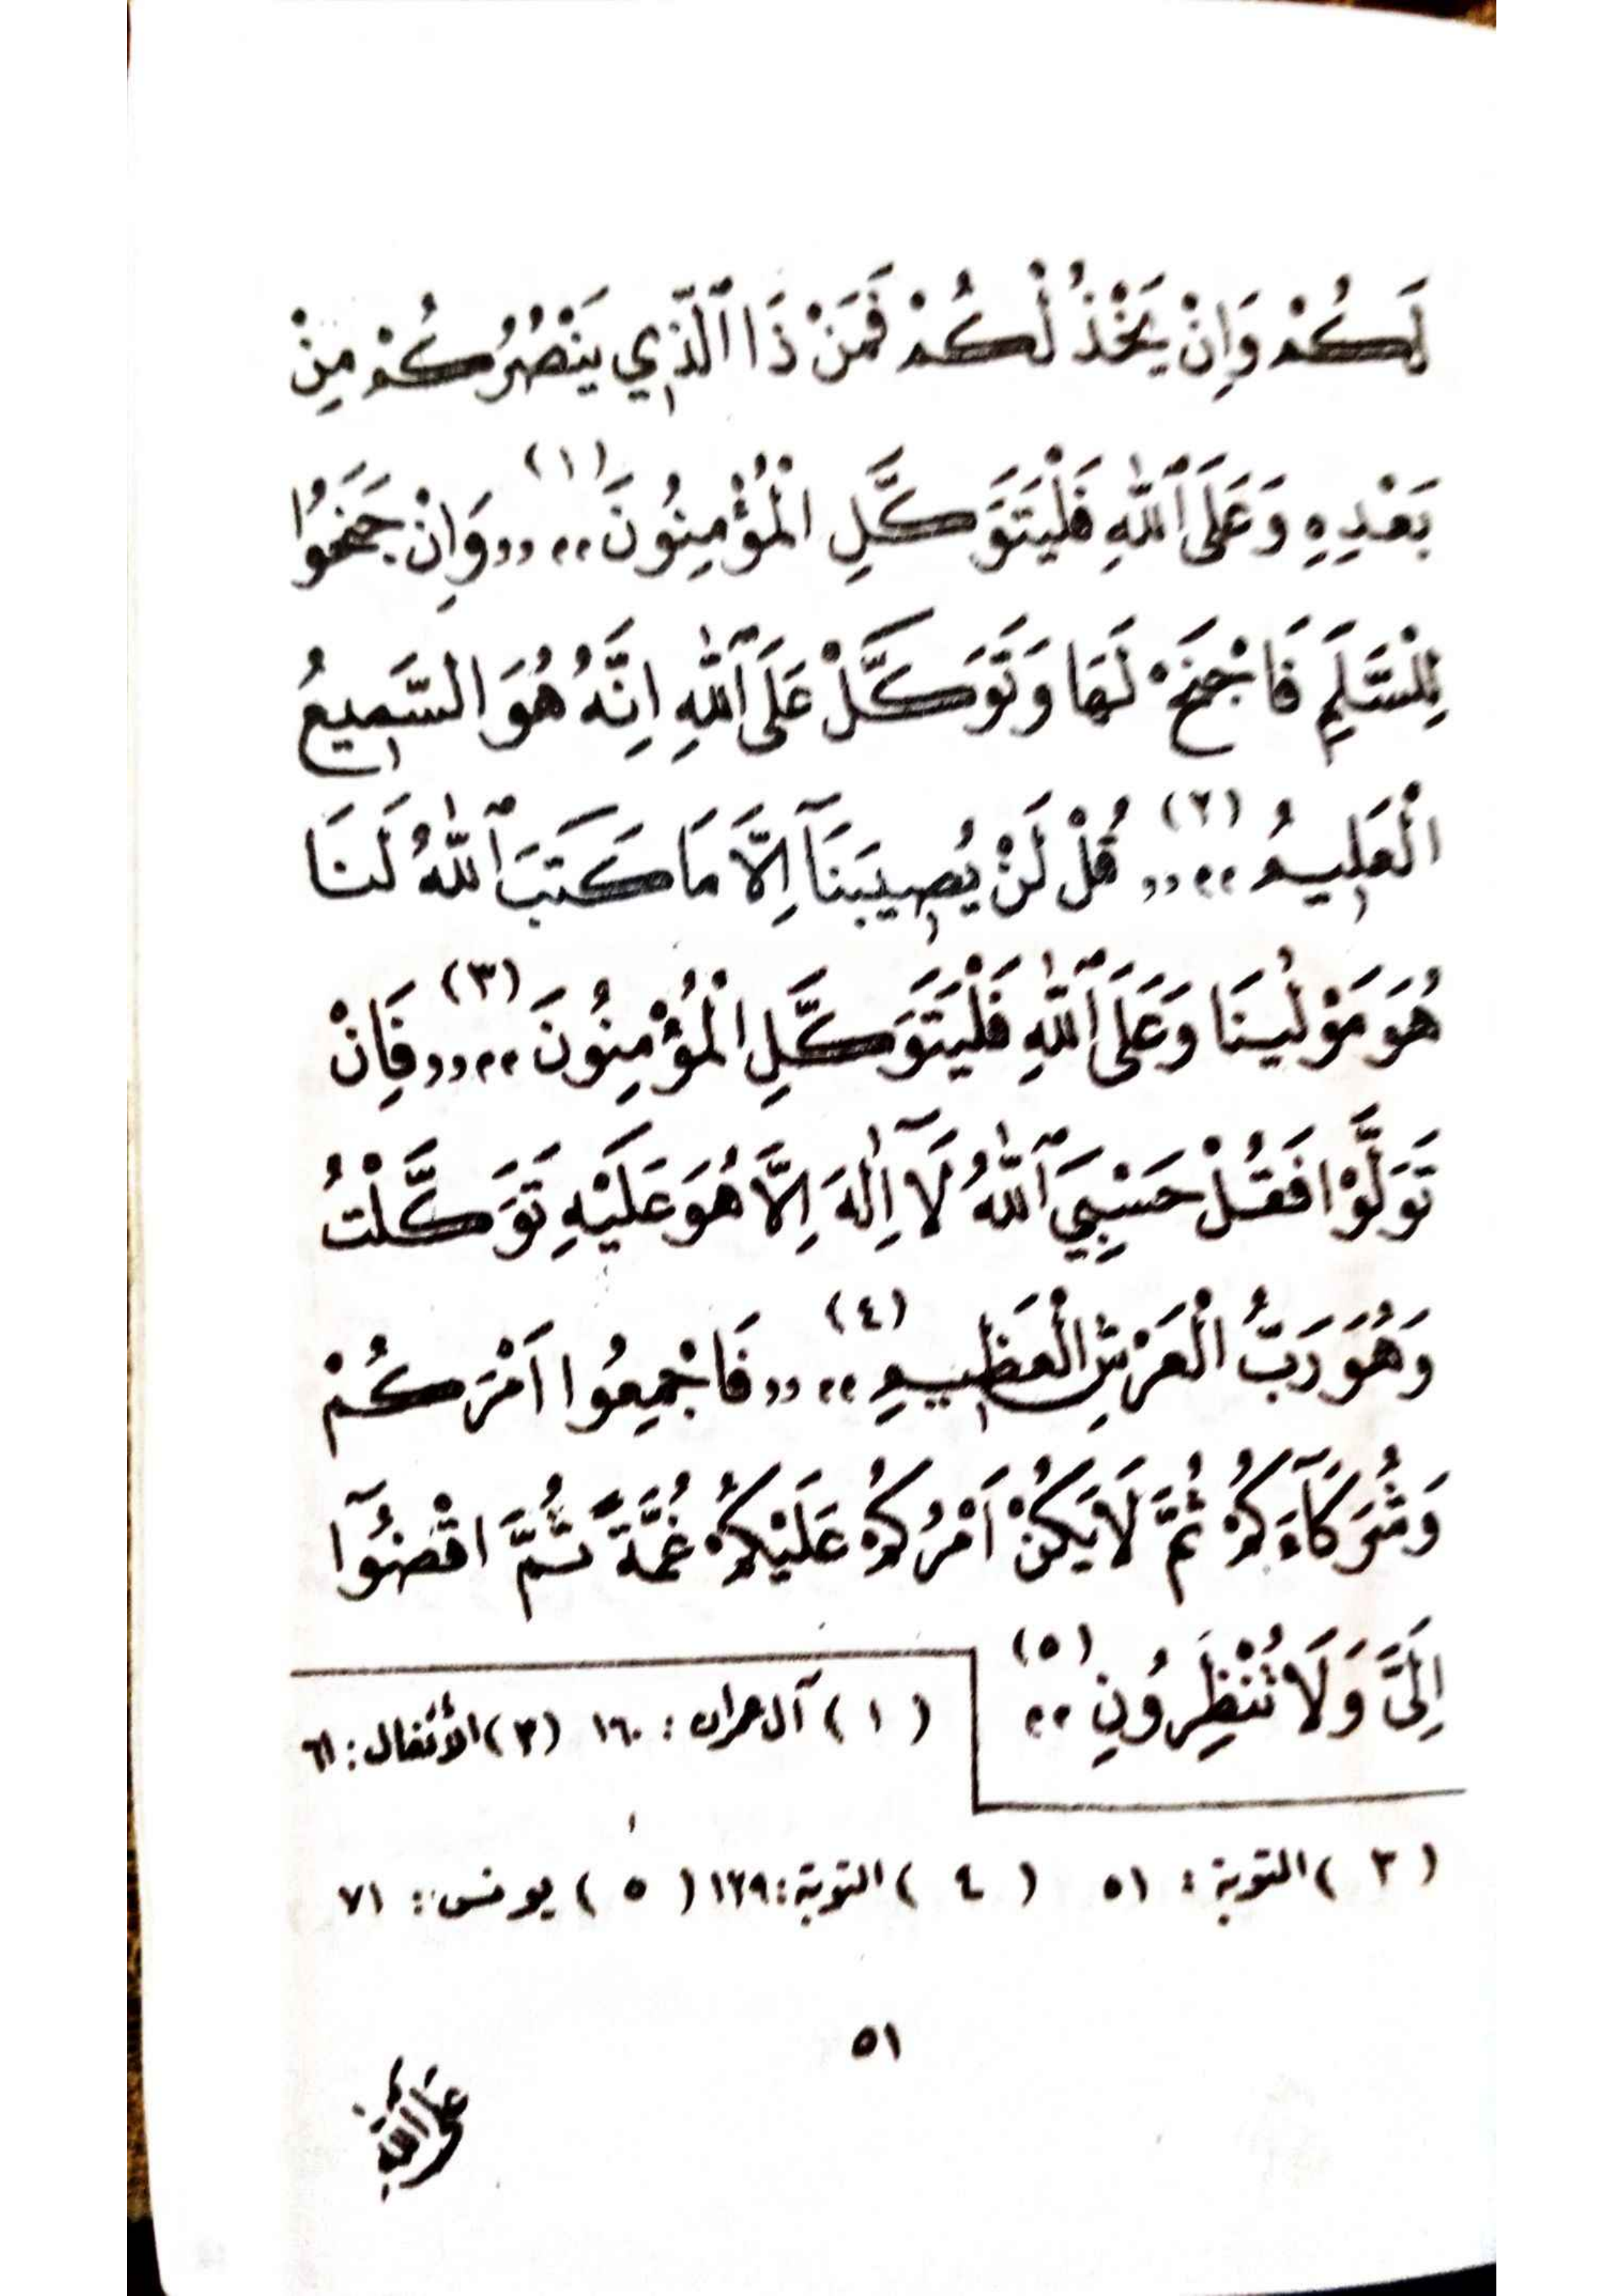 لَكُمْ وَاِنْ يَخْذُلْكُمْ فَمَنْ ذَا ٱلَّذِي يَنْصُرُكُمْ مِنْ
بَعْدِهِ وَعَلَى ٱللّٰهِ فَلْيَتَوَكَّلِ الْمُؤْمِنُونَ،، (١) ,,وَاِنْ جَنَحُوا
لِلسَّلِمِ فَاجْنَحْ لَهَا وَتَوَكَّلْ عَلَى ٱللّٰهِ اِنَّهُ هُوَ السَّمِيعُ
الْعَلِيمُ،، (٢) ,,قُلْ لَنْ يُصِيبَنَآ اِلَّا مَا كَتَبَ ٱللّٰهُ لَنَا
هُوَ مَوْلٰينَا وَعَلَى ٱللّٰهِ فَلْيَتَوَكَّلِ الْمُؤْمِنُونَ،، (٣) ,,فَاِنْ
تَوَلَّوْا فَقُلْ حَسْبِيَ ٱللّٰهُ لَآ اِلٰهَ اِلَّا هُوَ عَلَيْهِ تَوَكَّلْتُ
وَهُوَ رَبُّ الْعَرْشِ الْعَظِيمِ،، (٤) ,,فَاجْمِعُوا اَمْرَكُمْ
وَشُرَكَآءَكُمْ ثُمَّ لَا يَكُنْ اَمْرُكُمْ عَلَيْكُمْ غُمَّةً ثُمَّ اقْضُوٓا
اِلَيَّ وَلَا تُنْظِرُونِ،، (٥)
(١) آل عمران: ١٦٠ (٣) الأنفال: ٦١
(٣) التوبة: ٥١ (٤) التوبة: ١٢٩ (٥) يونس: ٧١
٥١
عَلَى اللّٰهِ